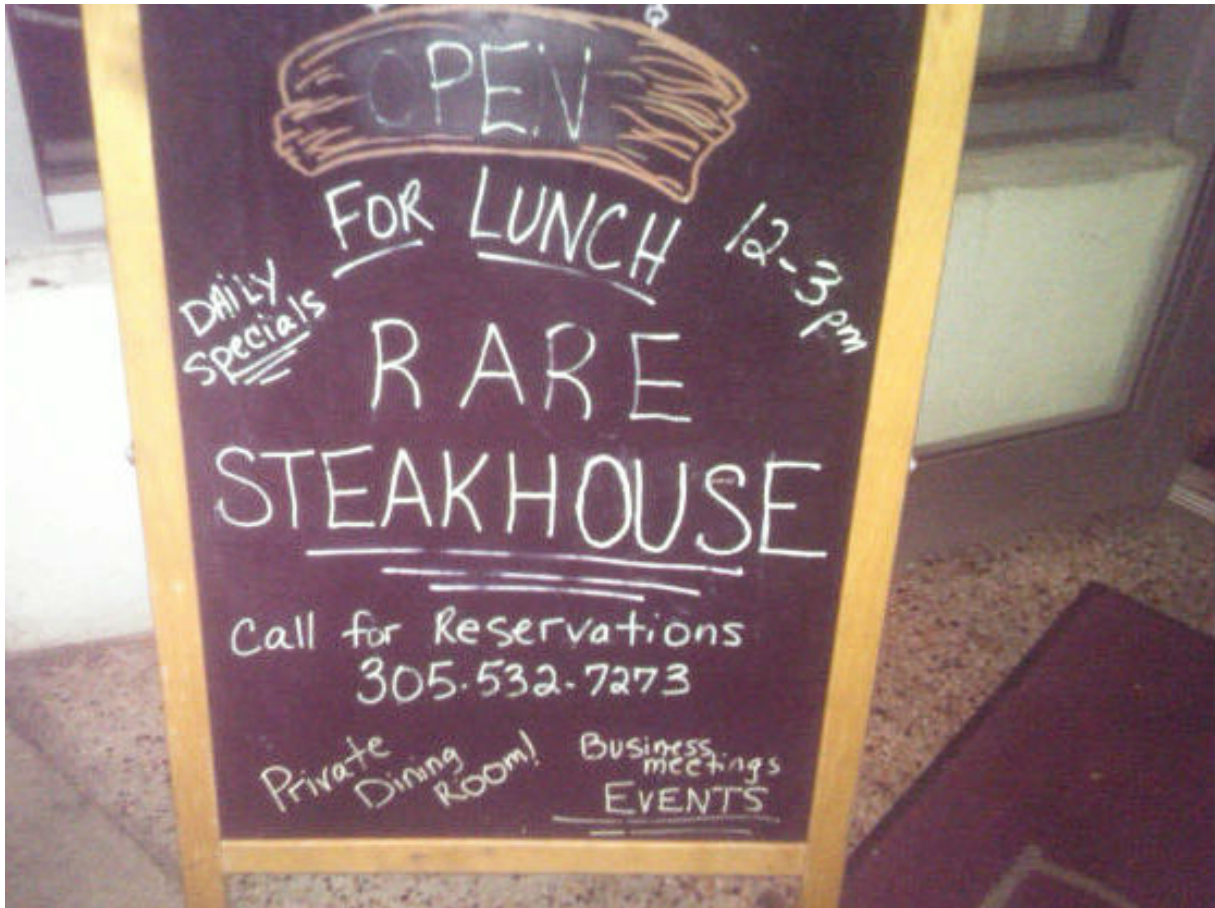 OPEN
FOR LUNCH
12-3pm
DAILY
Specials
RARE
STEAKHOUSE
Call for Reservations
305.532.7273
Private
Dining
ROOM!
Business
meetings
EVENTS